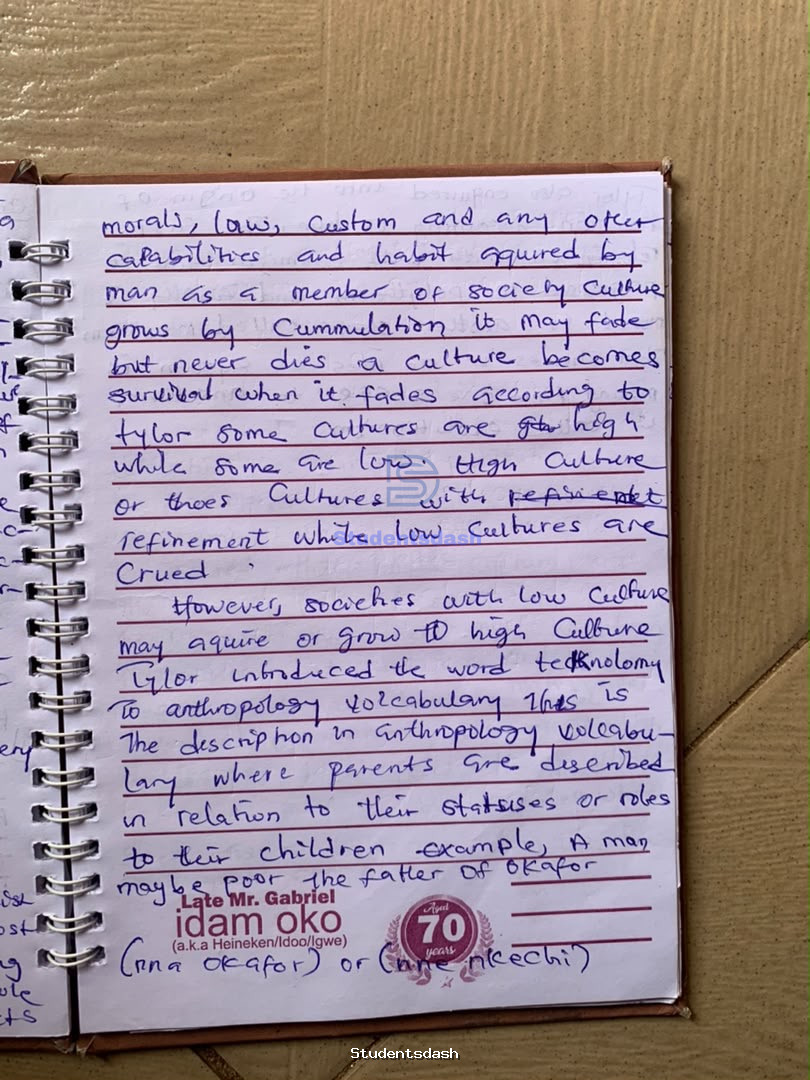 morals, law, Custom and any other
capabilities and habit aquired by
man as a member of society Culture
grows by Cummulation it may fade
but never dies a culture becomes
survival when it fades according to
tylor some Cultures are high
while some are low. High Culture
or thoes Cultures with refinemet
refinement while low Cultures are
Crued.
However, societies with low Culture
may aquire or grow to high Culture
Tylor introduced the word tecknolomy
To anthropology volcabulary This is
The description in anthropology volcabu-
lary where parents are described
in relation to their statuses or roles
to their children example, A man
maybe poor the father of okafor
Late Mr. Gabriel
idam oko
(a.k.a Heineken/Idoo/Igwe)
Aged
70
years
(nna okafor) or (nne nkechi)
Studentsdash
Studentsdash